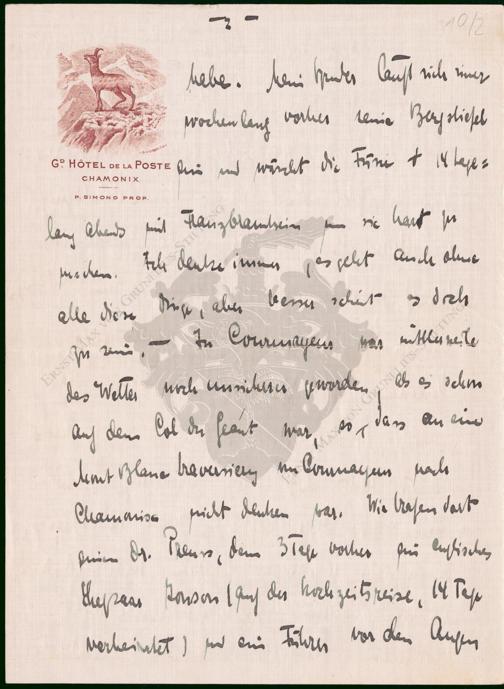 - 2 -
10/2
Gᴰ HÔTEL DE LA POSTE
CHAMONIX
P. SIMOND PROP.
habe. Mein Bruder läuft sich immer
wochenlang vorher seine Bergstiefel
ein und wäscht die Füsse + 14 tage=
lang abends mit Franzbranntwein um sie hart zu
machen. Ich denke immer, es geht auch ohne
alle diese Dinge, aber besser scheint es doch
zu sein. — In Courmayeur war mittlerweile
das Wetter noch unsicherer geworden, als es schon
auf dem Col du Géant war, so, dass an eine
Mont Blanc traversierung von Courmayeur nach
Chamonix nicht denken war. Wir trafen dort
einen Dr. Preuss, dem 3 Tage vorher ein englisches
Ehepaar Jonson (auf der Hochzeitsreise, 14 Tage
verheiratet) und ein Führer vor den Augen
ERNST MAX VON GRUNELIUS-STIFTUNG